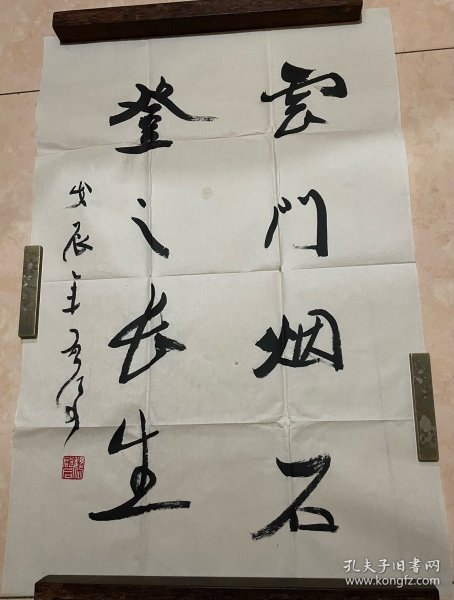 雲門烟石
登之長生
戊辰年
孔夫子旧书网
www.kongfz.com